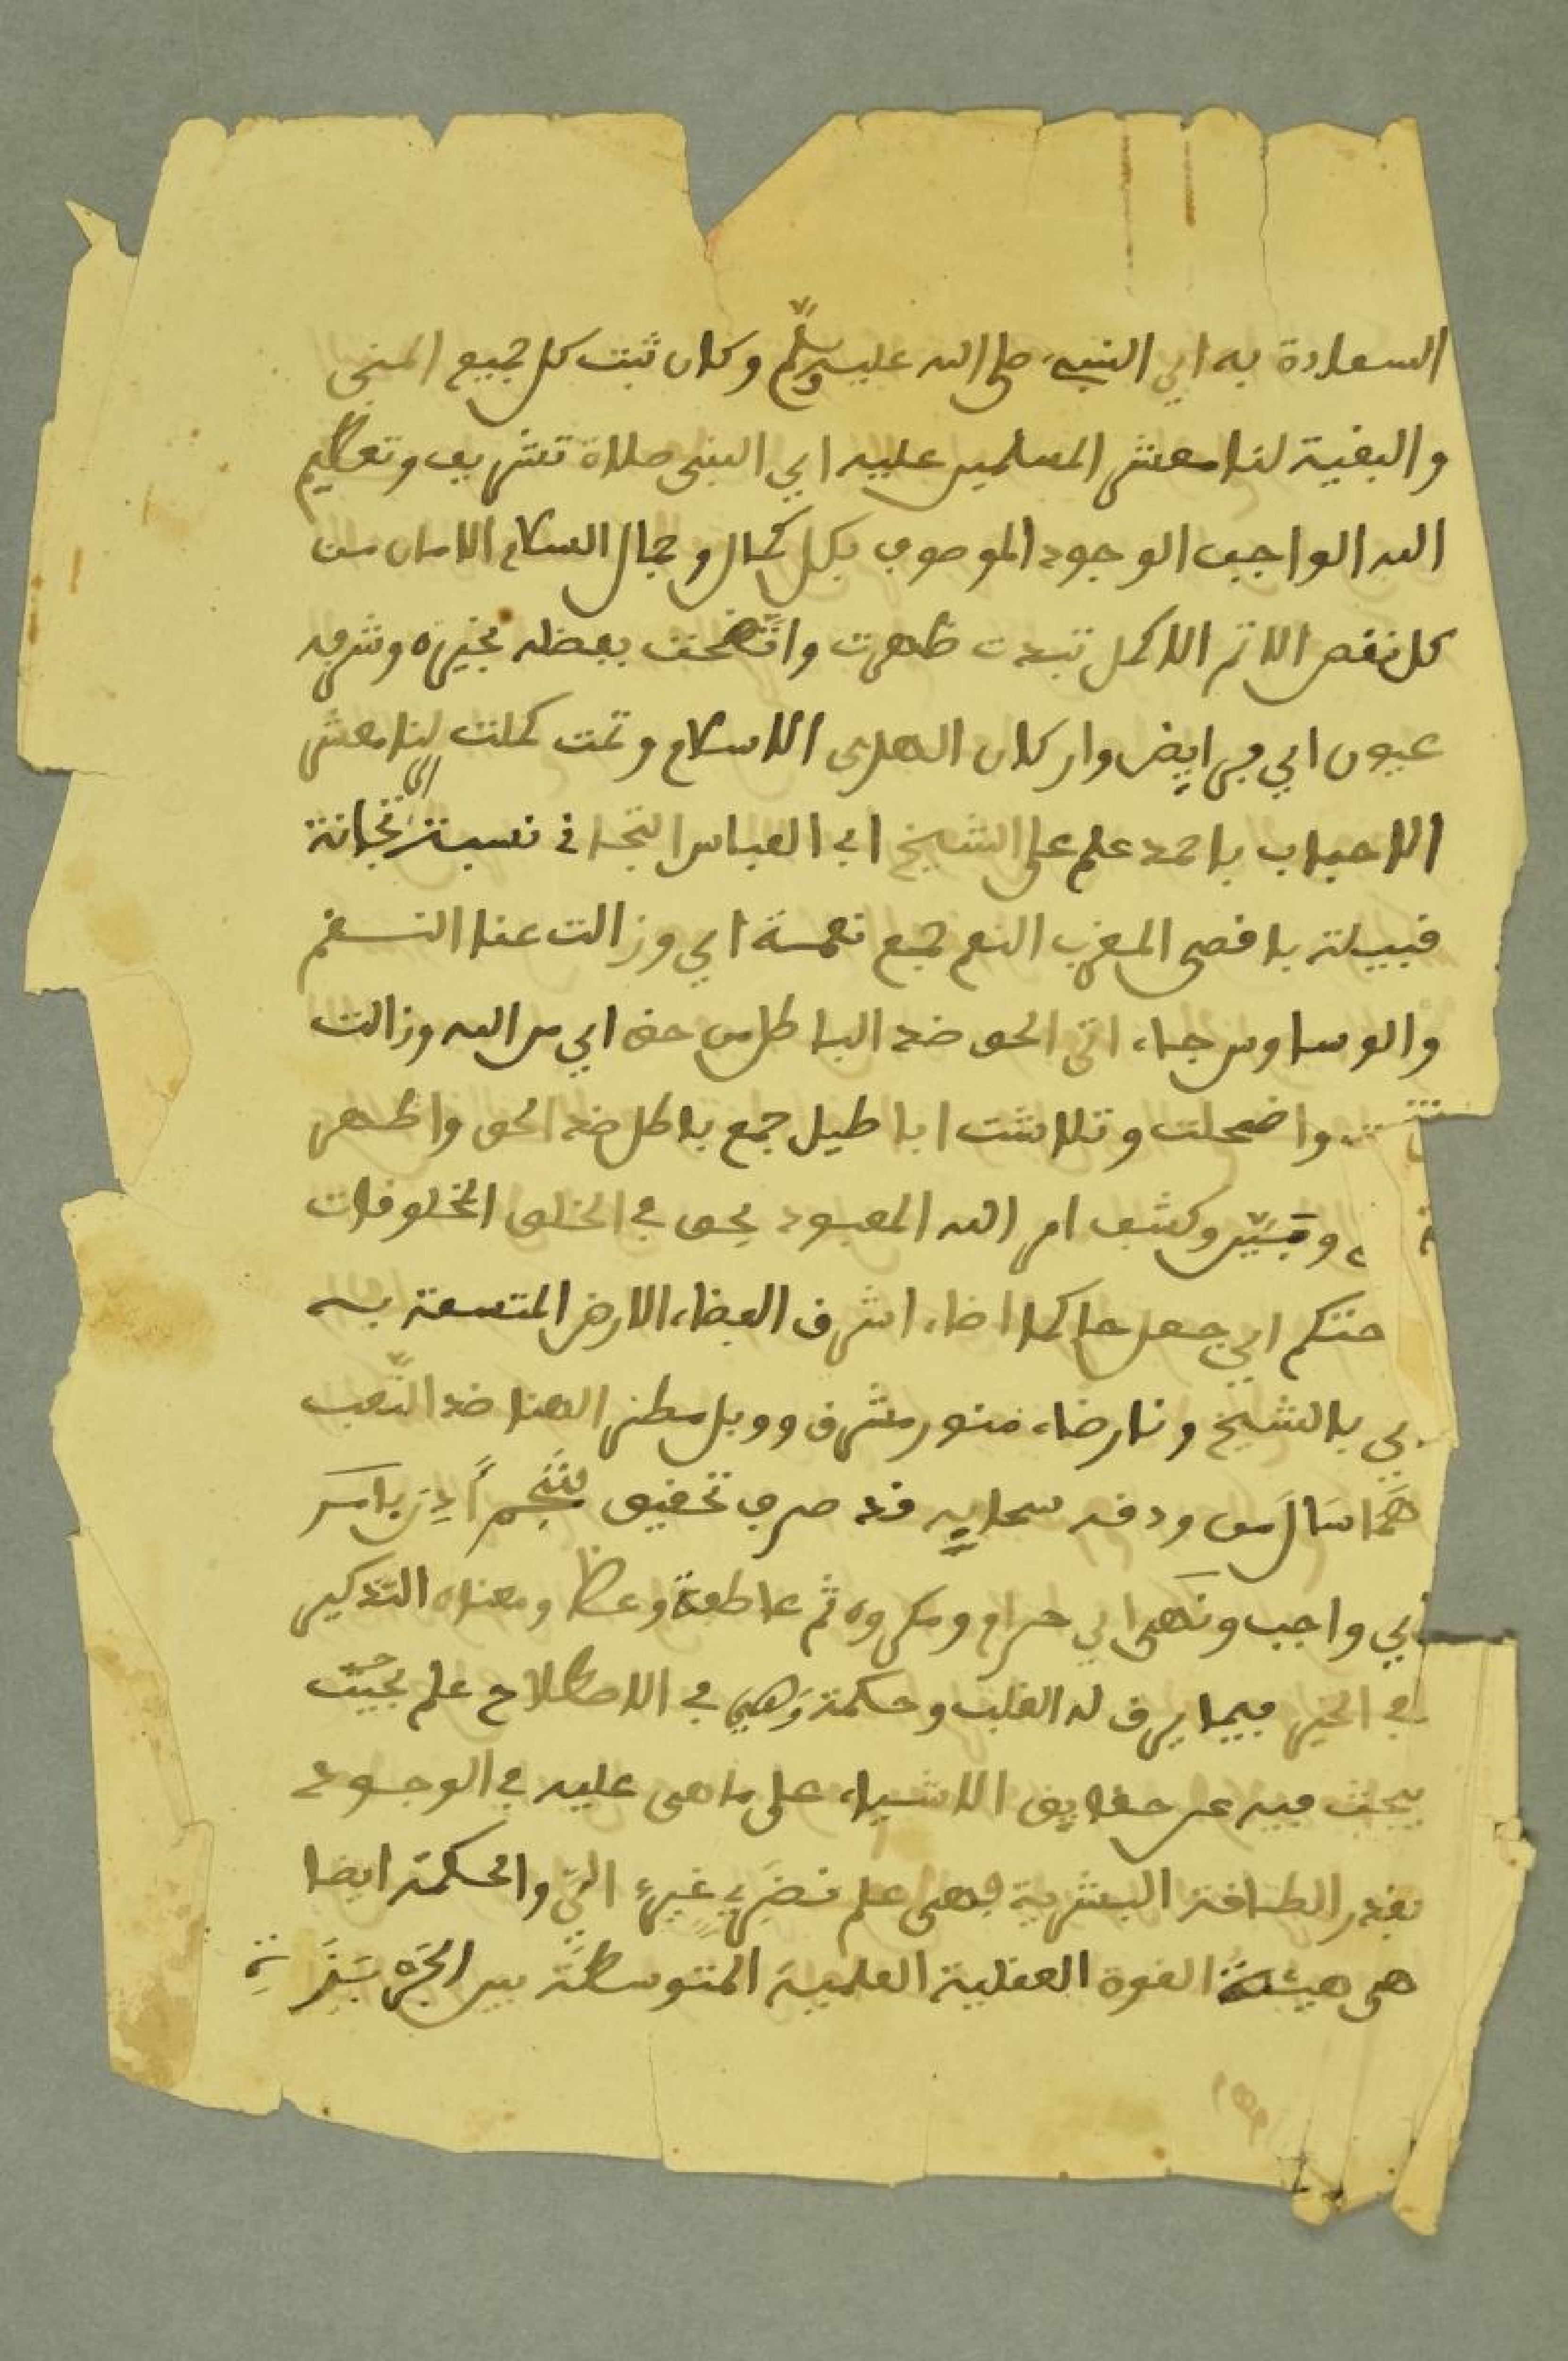 السعادة به اي النبي صلى الله عليه وسلم وكان ثبت كل جميع المنى
والبغية لنا معشر المسلمين عليه اي النبي صلاة تشريف وتعظيم
الله الواجب الوجود الموصوف بكل كمال وجمال السلام الامان من
كل نقص الاتم الاكمل تبدت ظهرت واتضحت بفضله بخيره وشرفه
عيون اي فرايض واركان الهدى الاسلام وتمت كملت لنا معشر
الاحباب باحمد علم على الشيخ ابي العباس التجاني نسبة الى تجانة
قبيلة باقصى المغرب النعم جمع نعمة اي وزالت عنا النقم
والوساوس جاء اتى الحق ضد الباطل من حقه اي من الله وزالت
واضمحلت وتلاشت اباطيل جمع باطل ضد الحق واظهر
وتبين وكشف امر الله المعبود بحق في الخلق المخلوقات
حتكم اي جعل حاكما اضاء اشرق الفضاء الارض المتسعة به
بالشيخ ونارضاء فنور مشرق ووبل مطر الهنا ضد التعب
هما سال من ودقه سحابه قد صرف تحقيق اي واجب ونهى اي حرام ومكروه ثم عاطفة وعظا ومعناه التذكير
في الخير فيما يرق له القلب وحكمة وهي في الاصطلاح علم
يبحث فيه عن حقايق الاشياء على ما هي عليه في الوجود
بقدر الطاقة البشرية فهي علم نضري غير الي والحكمة ايضا
هي هيئة القوة العقلية العلمية المتوسطة بين